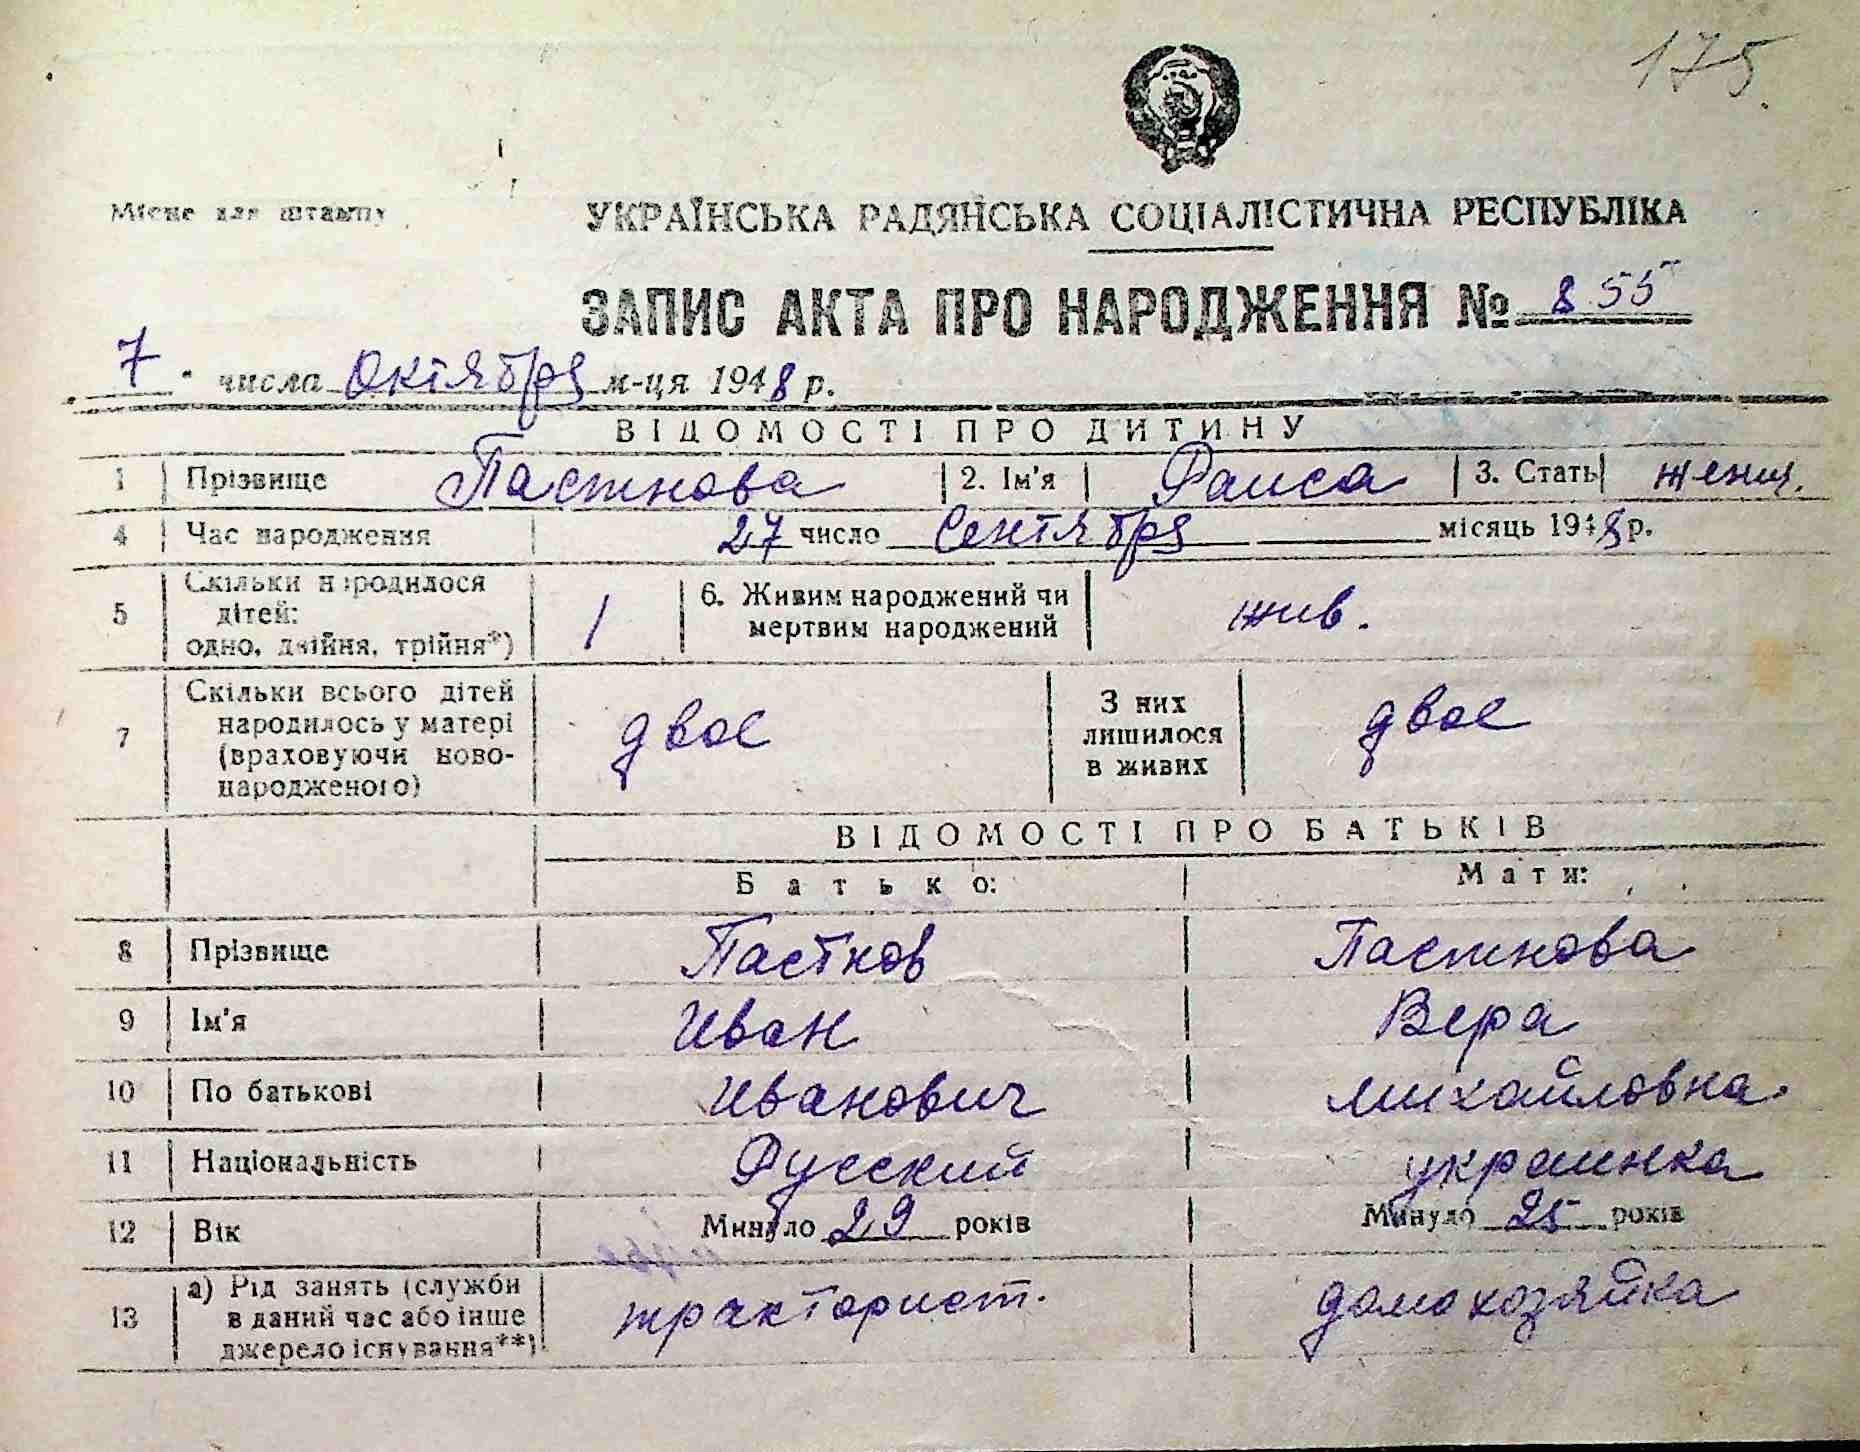 175.
Місце для штампу
УКРАЇНСЬКА РАДЯНСЬКА СОЦІАЛІСТИЧНА РЕСПУБЛІКА
ЗАПИС АКТА ПРО НАРОДЖЕННЯ № 855
7 числа Октября м-ця 1948 р.
ВІДОМОСТІ ПРО ДИТИНУ
1 Прізвище Пастнова 2. Ім'я Раиса 3. Стать женщ.
4 Час народження 27 число Сентября місяць 1948 р.
5 Скільки народилося
дітей:
одно, двійня, трійня*) 1 6. Живим народжений чи
мертвим народжений жив.
7 Скільки всього дітей
народилось у матері
(враховуючи ново-
народженого) двое З них
лишилося
в живих двое
ВІДОМОСТІ ПРО БАТЬКІВ
Батько: Мати:
8 Прізвище Пастнов Пастнова
9 Ім'я Иван Вера
10 По батькові Иванович Михайловна.
11 Національність Русский украинка
12 Вік Минуло 29 років Минуло 25 років
13 а) Рід занять (служби
в даний час або інше
джерело існування**) тракторист. домохозяйка